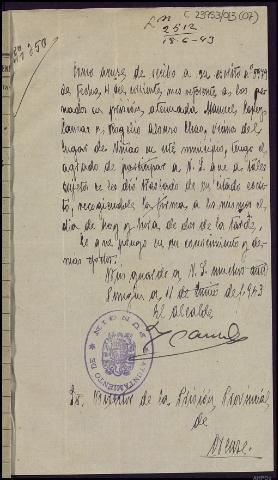 C 23753/013 (07)
2512
18-6-43
Como acuse de recibo a su escrito nº
de fecha, 4 del corriente, mes referente a los penados en prisión atenuada Manuel López
y Rogelio Alonso vecinos del
lugar de en este municipio, tengo el
agrado de participar a V. S. que a tales
sujetos se les dió traslado de su citado escrito, recogiendoles la firma a los mismos el
día de hoy y hora de dos de la tarde.
Lo que pongo en su conocimiento y demas efectos.
Dios guarde a V. S. muchos años
a 11 de Junio de 1943
El alcalde
AYUNTAMIENTO DE
Sr. Director de la Prisión Provincial
de
Orense.